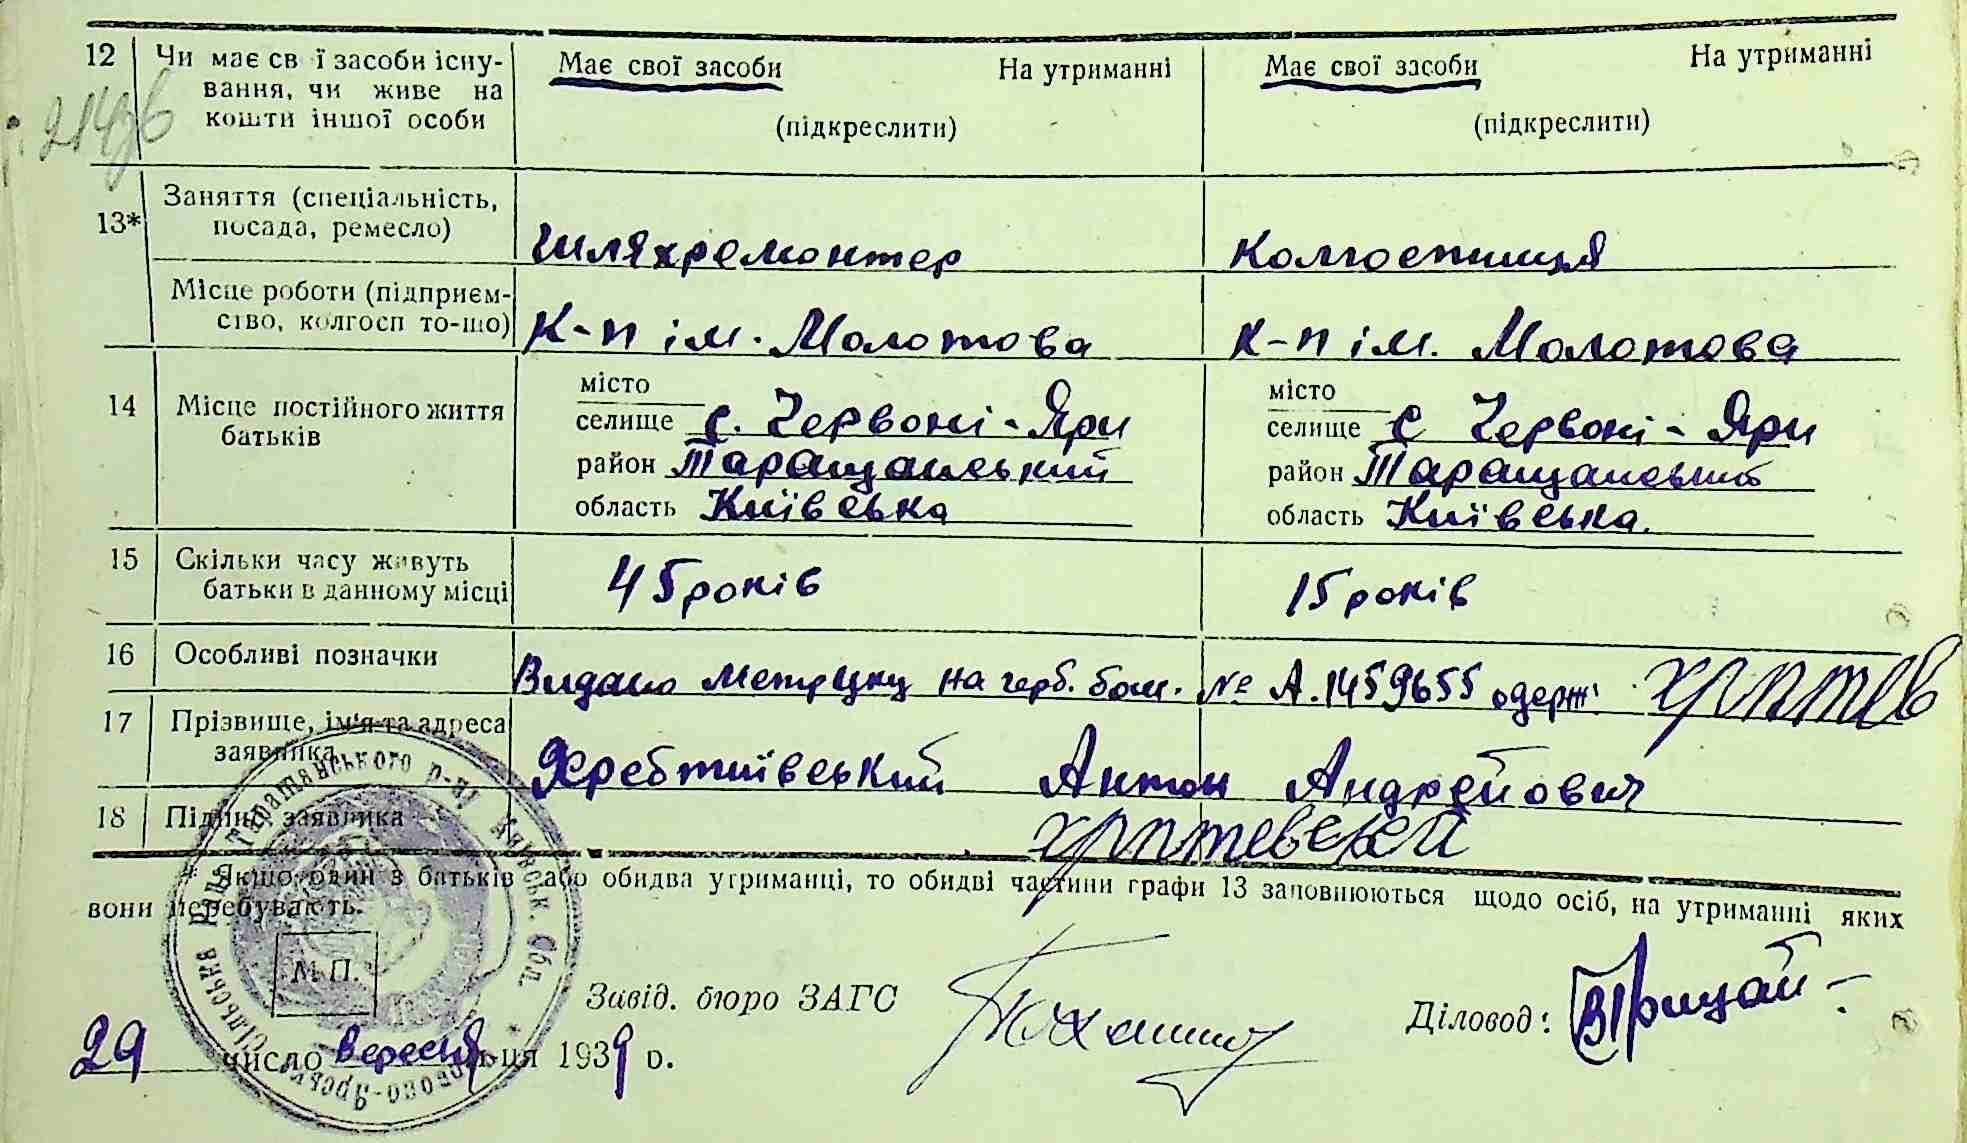 12 Чи має св ї засоби існу- Має свої засоби На утриманні Має свої засоби На утриманні
вання, чи живе на
кошти іншої особи (підкреслити) (підкреслити)
13* Заняття (спеціальність,
посада, ремесло) Шляхремонтер Колгоспниця
Місце роботи (підприєм-
ство, колгосп то-що) К-п ім. Молотова К-п ім. Молотова
місто місто
14 Місце постійного життя селище с. Червоні-Яри селище с Червоні-Яри
батьків район Таращанський район Таращанський
область Київська область Київська.
15 Скільки часу живуть
батьки в данному місці 45 років 15 років
16 Особливі позначки Видано метрику на герб. бом. № А.1459655 одерж.
17 Прізвище, ім'я та адреса
заявника Хребтиївський Антон Андрейович
18 Підпис заявника
* Якщо один з батьків або обидва утриманці, то обидві частини графи 13 заповнюються щодо осіб, на утриманні яких
вони перебувають.
М. П.
Завід. бюро ЗАГС Діловод:
29 число вересня ця 1939 р.
Сільська Рада Таращанського р-ну Київськ. Обл.